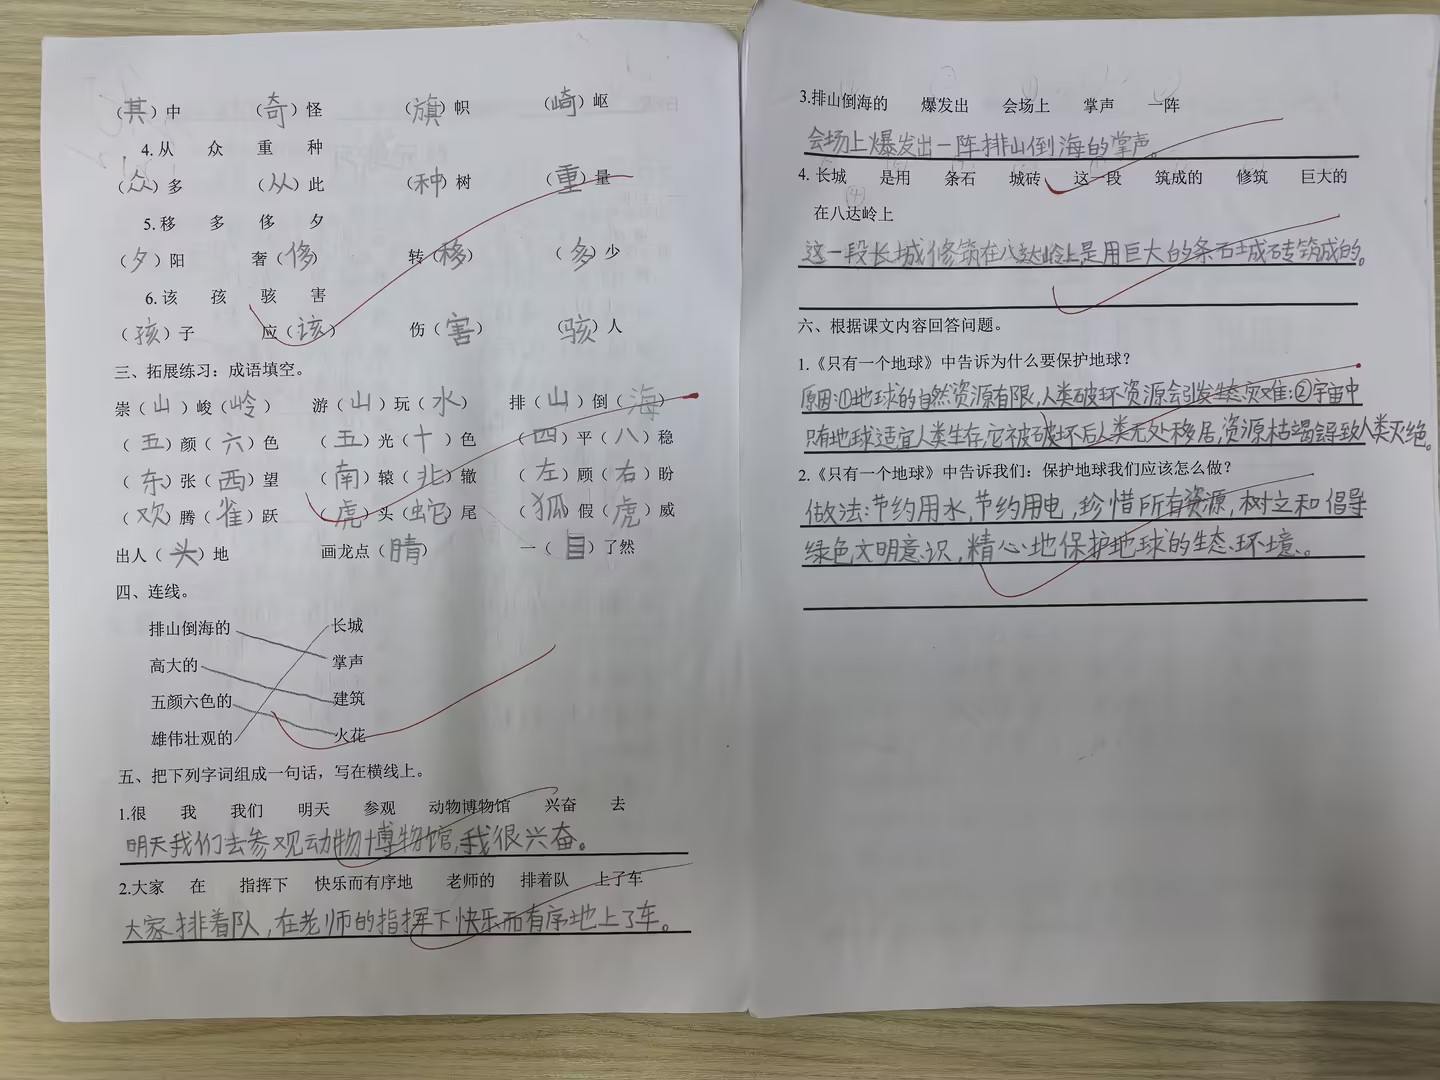 （其）中 （奇）怪 （旗）帜 （崎）岖
4.从 众 重 种
（众）多 （从）此 （种）树 （重）量
5.移 多 侈 夕
（夕）阳 奢（侈） 转（移） （多）少
6.该 孩 骇 害
（孩）子 应（该） 伤（害） （骇）人
三、拓展练习：成语填空。
崇（山）峻（岭） 游（山）玩（水） 排（山）倒（海）
（五）颜（六）色 （五）光（十）色 （四）平（八）稳
（东）张（西）望 （南）辕（北）辙 （左）顾（右）盼
（欢）腾（雀）跃 （虎）头（蛇）尾 （狐）假（虎）威
出人（头）地 画龙点（睛） 一（目）了然
四、连线。
排山倒海的 长城
高大的 掌声
五颜六色的 建筑
雄伟壮观的 火花
五、把下列字词组成一句话，写在横线上。
1.很 我 我们 明天 参观 动物博物馆 兴奋 去
明天我们去参观动物博物馆,我很兴奋。
2.大家 在 指挥下 快乐而有序地 老师的 排着队 上了车
大家排着队，在老师的指挥下快乐而有序地上了车。
3.排山倒海的 爆发出 会场上 掌声 一阵
会场上爆发出一阵排山倒海的掌声。
4. 长城 是用 条石 城砖 这一段 筑成的 修筑 巨大的
在八达岭上
这一段长城修筑在八达岭上,是用巨大的条石城砖筑成的。
六、根据课文内容回答问题。
1.《只有一个地球》中告诉为什么要保护地球？
原因:①地球的自然资源有限,人类破坏资源会引发生态灾难;②宇宙中
只有地球适宜人类生存,它被破坏后人类无处移居,资源枯竭会导致人类灭绝。
2.《只有一个地球》中告诉我们：保护地球我们应该怎么做？
做法:节约用水,节约用电，珍惜所有资源，树立和倡导
绿色文明意识，精心地保护地球的生态环境。